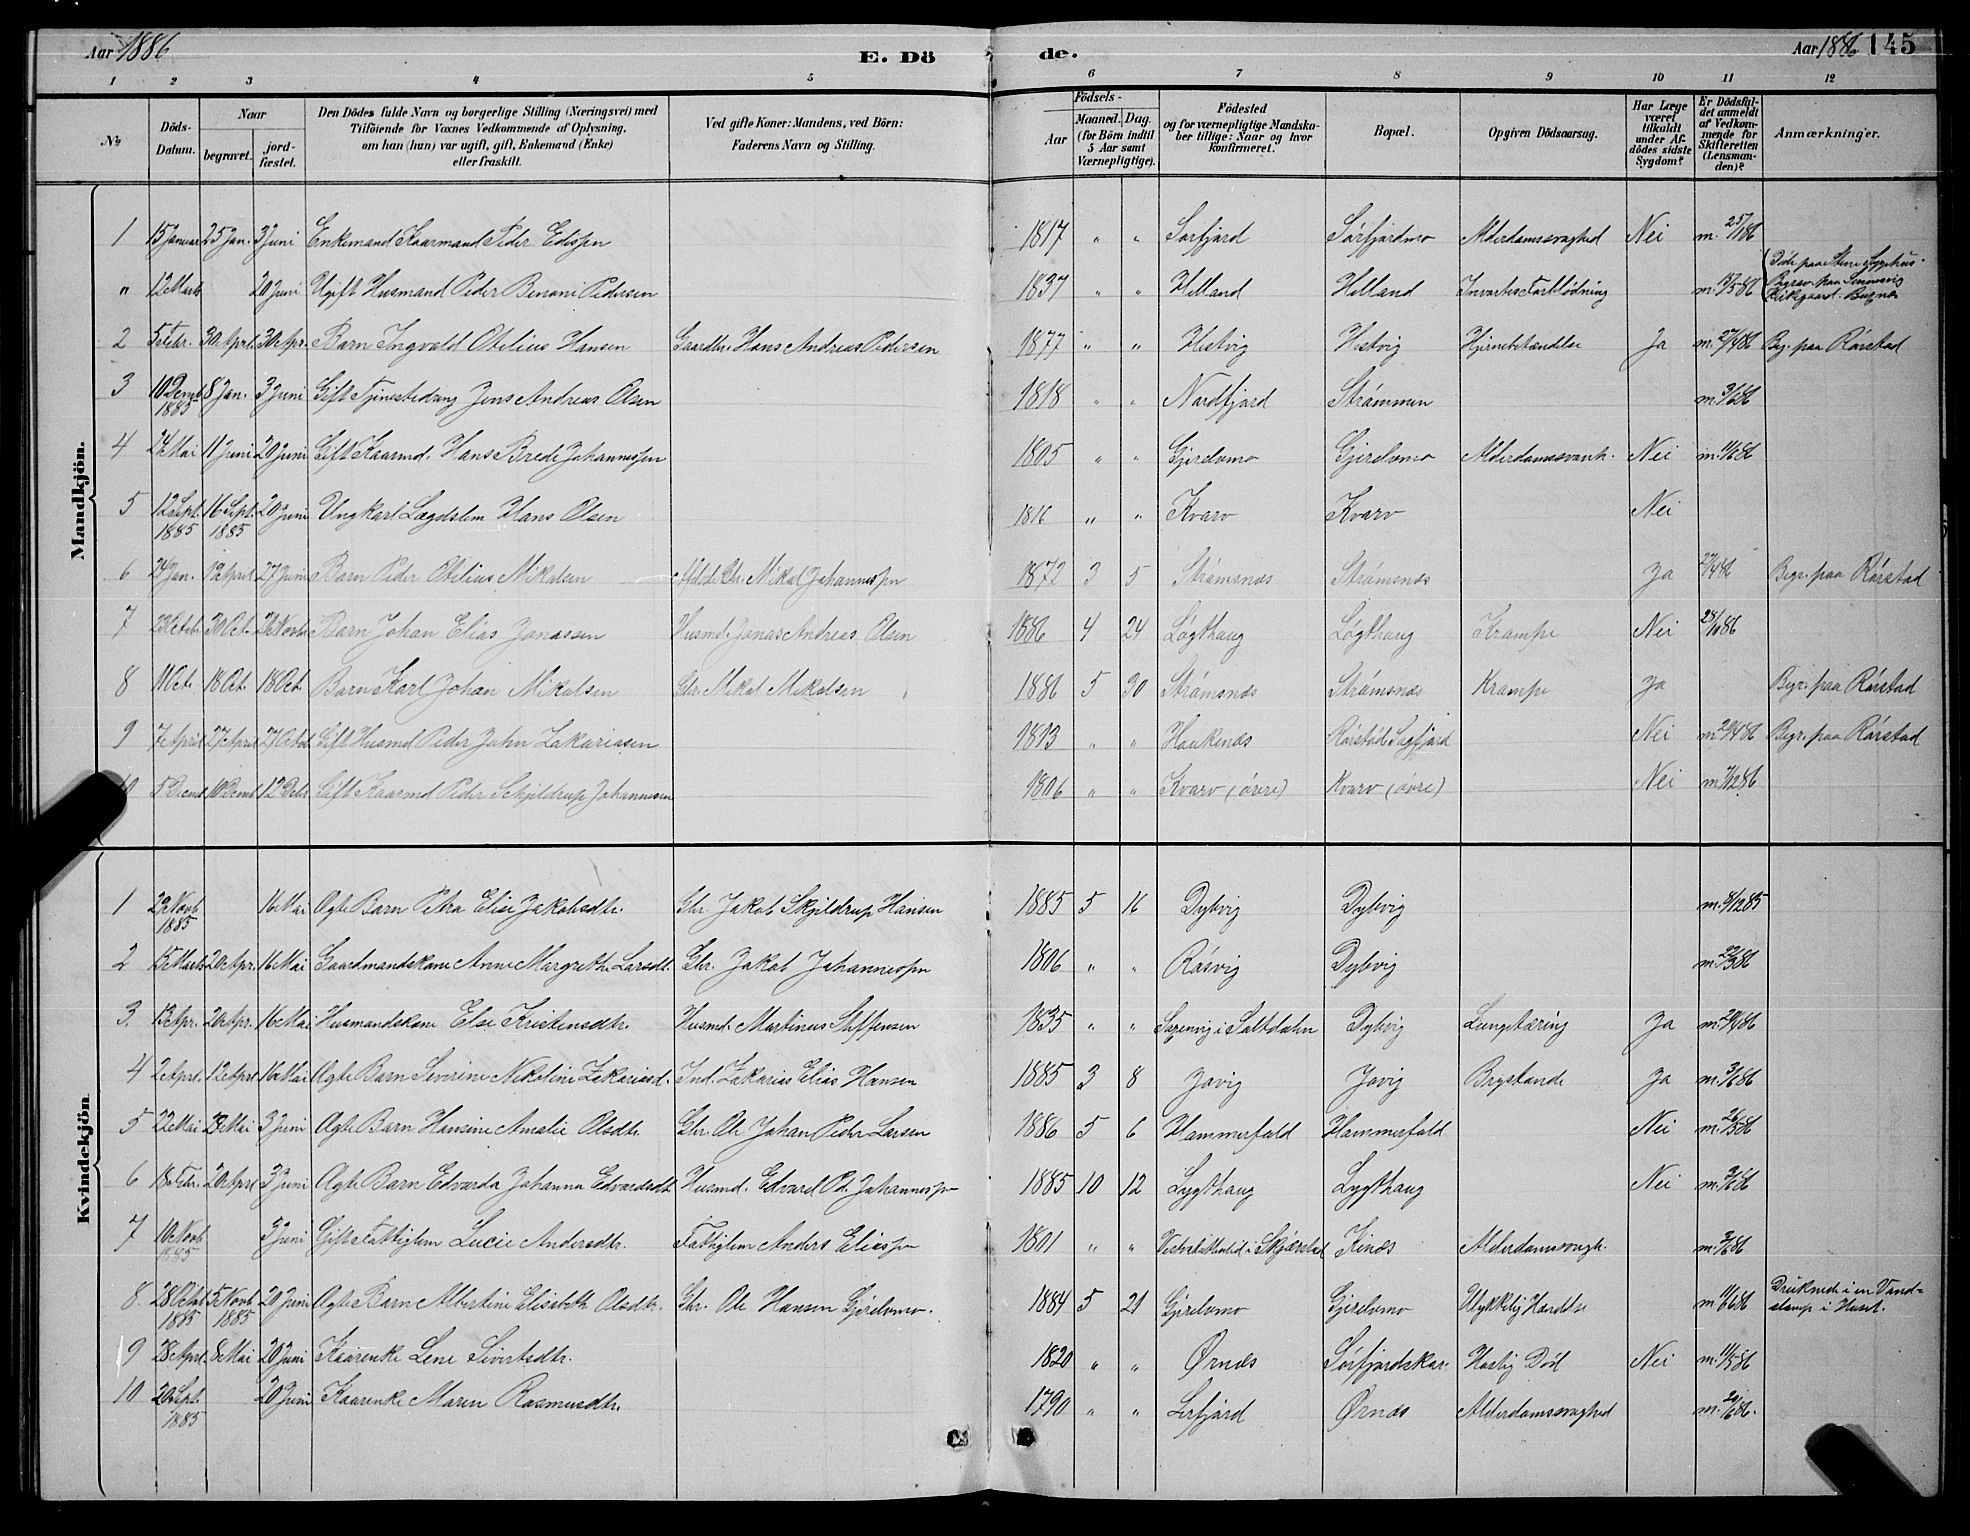 Aar 1886
E. Dö
de.
Aar 1886
145
1 2 3 4 5 6 7 8 9 10 11 12
No
Döds-Datum.
Naar
begravet.
jord-fæstet.
Den Dödes fulde Navn og borgerlige Stilling (Næringsvei) med
Tilföiende for Voxnes Vedkommende af Oplysning,
om han (hun) var ugift, gift, Enkemand (Enke)
eller fraskilt.
Ved gifte Koner: Mandens, ved Börn:
Faderens Navn og Stilling.
Födsels-
Aar
Maaned. Dag.
(for Börn indtil
5 Aar samt
Værnepligtige).
Födested
og for værnepligtige Mandska-
ber tillige: Naar og hvor
konfirmeret.
Bopæl.
Opgiven Dödsaarsag.
Har Læge
været
tilkaldt
under Af-
dödes sidste
Sygdom?
Er Dödsfal-
det anmeldt
af Vedkom-
mende for
Skifteretten
(Lensman-
den)?
Anmærkninger.
Mandkjön.
1 15 Januar 25 Jan. 3 Juni Enkemand Kaarmand Peder Edispn 1817 " " Sørfjord Sörfjordmo Alderdomssvaghed Nei m. 25/1 86
" 12 Marts 20 Juni Ugift Husmand Peder Benoni Pedersen 1837 " " Helland Helland Invortes Forblödning m. 13/5 86 Döde paa Sygehus. Begrav. paa Kirkegaard
2 5 Febr. 30 April 30 Apr. Barn Ingvald Otelius Hansen Gaardbr. Hans Andreas Pedersen 1877 " " Hestvig Hestvig Hjernebetændelse Ja m. 27/4 86 Beg. paa Rörstad
3 10 Decmb 1885 8 Jan. 3 Juni Gift Jens Andreas Olsen 1818 " " Nordfjord Strömmen m. 3/6 86
4 24 Mai 11 Juni 20 Juni Gift Kaarmd. Hans Brede Johannespn 1805 " " Gjerelvmo Gjerelvmo Alderdomssvagh. Nei m. 11/6 86
5 12 Sept. 1885 16 Sept. 1885 20 Juni Ungkarl Lægdslem Hans Olsen 1816 " " Kvarv Kvarv Nei
6 24 Jan. 12 April 27 Juni Barn Peder Otelius Mikalsen Gbr. Mikal Johannespn 1872 3 5 Strömsnes Strömsnes Ja 27/4 86 Begr. paa Rörstad
7 23 Octob 30 Oct. Novb. Barn Johan Elias Jonassen Husmd. Jonas Andreas Olsen 1886 4 24 Løgthaug Løgthaug Krampe Nei 86
8 11 Oct. 18 Oct. 18 Oct. Barn Karl Johan Mikalsen Gbr. Mikal Mikalsen 1886 5 30 Strömsnes Strömsnes Krampe Ja Begr. paa Rörstad
9 7 April 27 April 27 Octob Gift Husmd Peder John Zakariasen 1813 " " Haukenes Rörstad Sagfjord Nei m. 4 86 Begr. paa Rörstad
10 5 Decmb 10 Decmb 12 Decbr Gift Kaarmd Peder Schjeldrup Johannesen 1806 " " Kvarv (övre) Kvarv (övre) Nei m. 12 86
Kvindekjön.
1 22 Novb 1885 16 Mai Ægte Barn Petra Elise Jakobsdtr. Gbr. Jakob Skjeldrup Hansen 1885 5 16 Dybvig Dybvig m. /12 85
2 15 Marts 20 Apr. 16 Mai Gaardmandskone Anne Margrethe Larsdt. Gbr. Jakob Johannespn 1806 " " Røsvig Dybvig m. 22/3 86
3. 13 Apr. 20 Apr. 16 Mai Husmandskone Else Kristensdtr. Husmd. Martinus Steffensen 1835 " " i Saltdalen Dybvig Lungetæring Ja m. 20/4 86
4 2 April 12 April 16 Mai Ægte Barn Severine Nikoline Zakariasd. Ind. Zakarias Elias Hansen 1885 3 8 Jovig Jovig Brystonde Ja m. 3/6 86
5 22 Mai 29 Mai 3 Juni Ægte Barn Hansine Amalie Olsdtr. Gbr. Ole Johan Peder Larsen 1886 5 6 Hammerfald Hammerfald Nei m. 26/5 86
6 18 Febr. 20 April 3 Juni Ægte Barn Edvarda Johanna Edvardsdt Husmd. Edvard Pd. Johannespn 1885 10 12 Lygthaug Lygthaug Nei m. 3/6 86
7 10 Novb 1885 3 Juni Gift Fattiglem Lucie Andersdtr. Fattiglem Anders Eliaspn 1801 " " i Skjerstad Kines Alderdomssvagh. m. 3/6 86
8. 28 Octob 1885 5 Novb 1885 20 Juni Ægte Barn Albertine Elisabeth Olsdtr. Gbr. Ole Hansen Gjerelvmo. 1884 5 21 Gjerelvmo Gjerelvmo Ulykkelig Hændelse m. 11/6 86 Druknede i en Vand-stamp i Huset.
9 28 April 8 Mai 20 Juni Kaarenke Lene Sivertsdtr. 1820 " " Ørnes Sörfjordskar. Hastig Död Nei m. 11/5 86
10 20 Sept. 1885 20 Juni Kaarenke Maren Rasmusdtr. 1790 " " Lerfjord Ørnes Alderdomssvaghed m. 20/6 86.